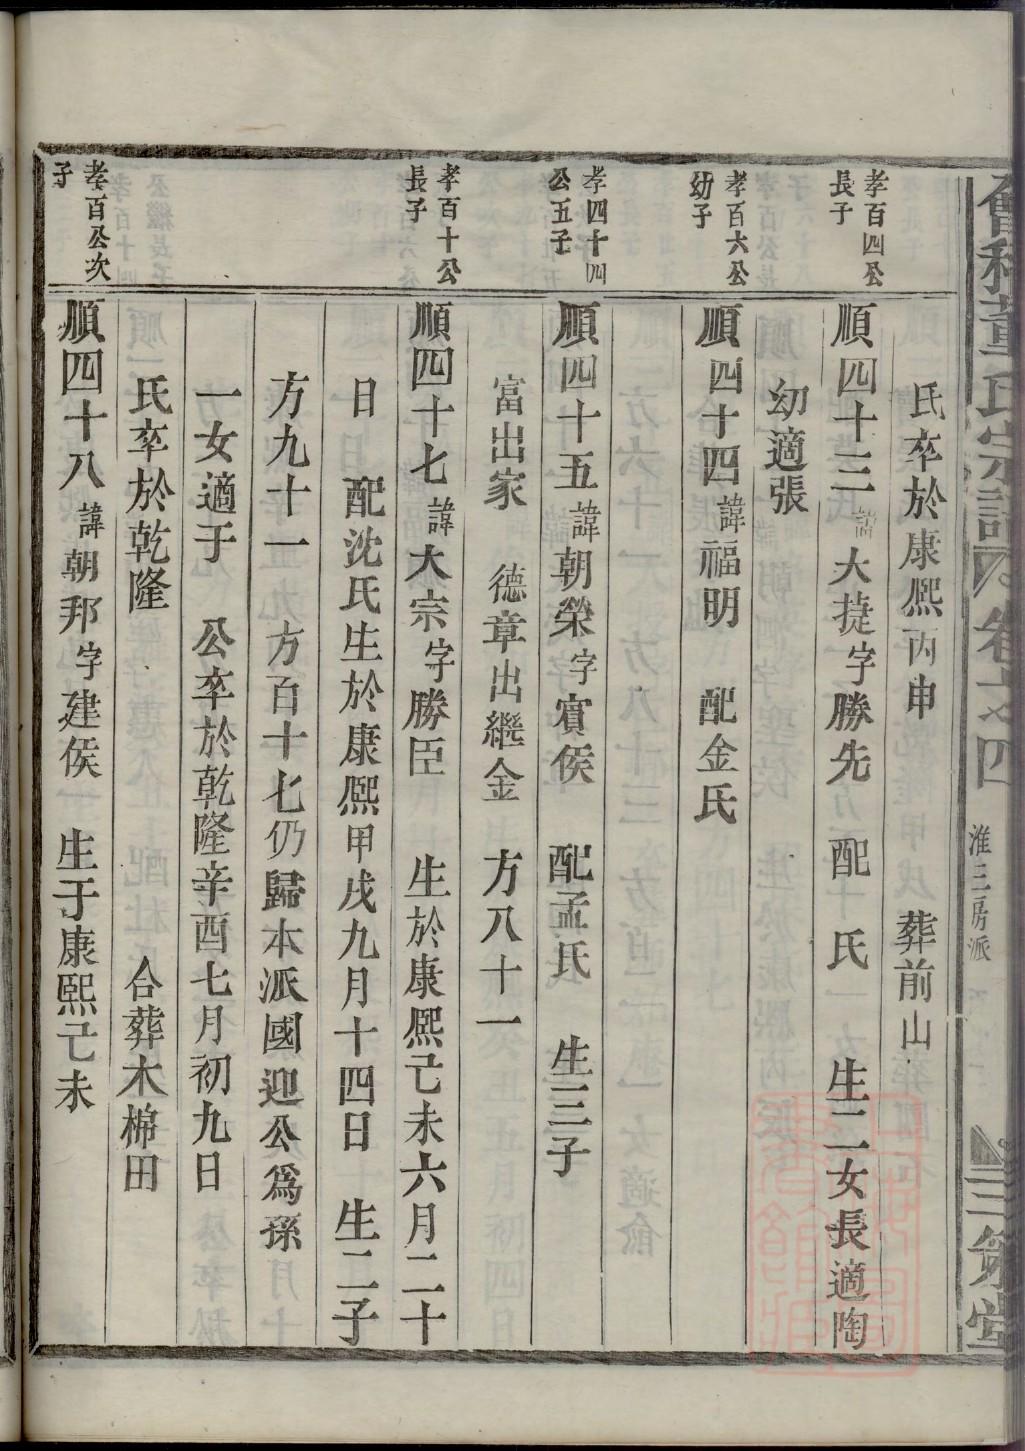 會稽董氏宗譜 卷之四 淮三房派 三策堂
氏卒於康熙丙申 葬前山
孝百四公長子
順四十三諱大捷字勝先 配 氏 生二女長適陶
幼適張
孝百六公幼子
順四十四諱福明 配金氏
孝四十四公五子
順四十五諱朝榮字賓侯 配孟氏 生三子
富出家 德章出繼金 方八十一
孝百十公長子
順四十七諱大宗字勝臣 生於康熙己未六月二十
日 配沈氏生於康熙甲戌九月十四日 生二子
方九十一 方百十七仍歸本派國迎公爲孫
一女適于 公卒於乾隆辛酉七月初九日
氏卒於乾隆 合葬木棉田
孝百公次子
順四十八諱朝邦字建侯 生于康熙己未